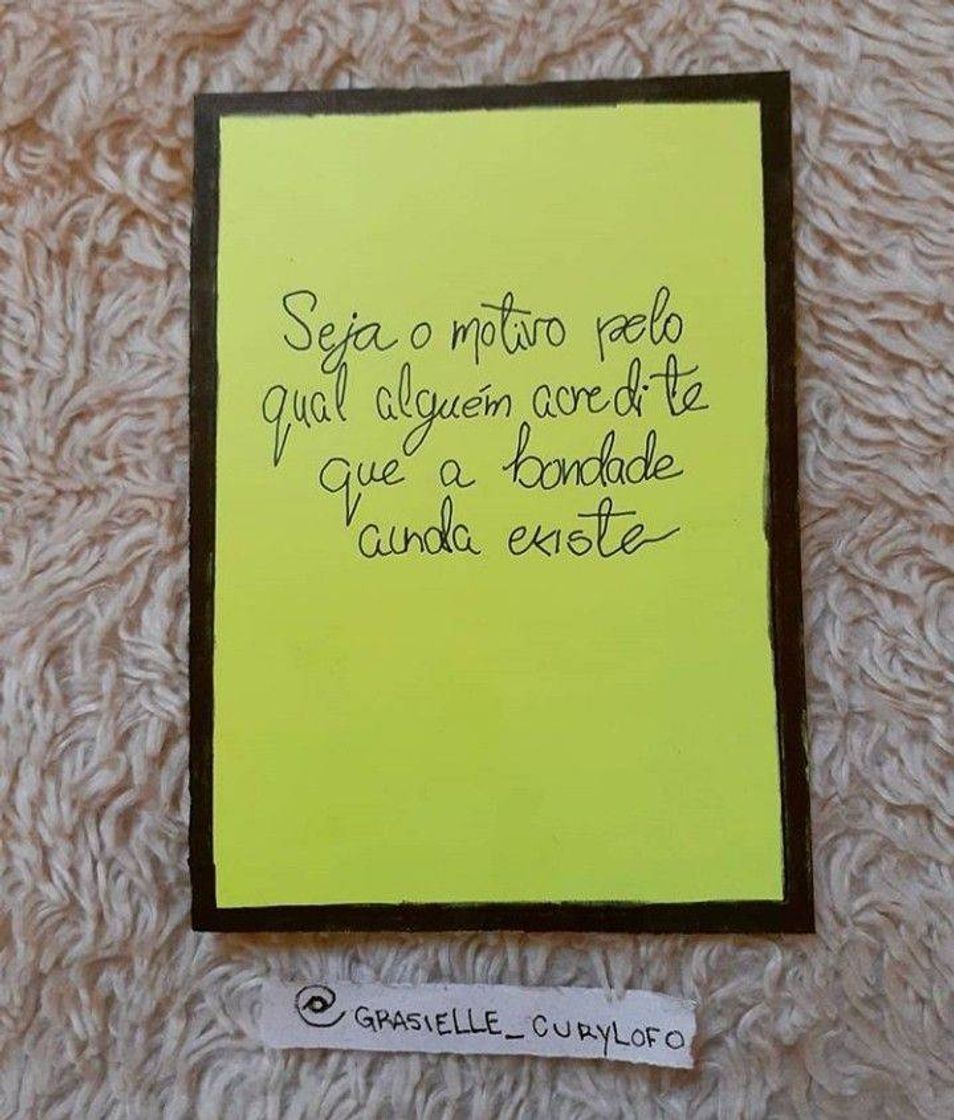 Seja o motivo pelo
qual alguém acredite
que a bondade
ainda existe
@GRASIELLE_CURYLOFO